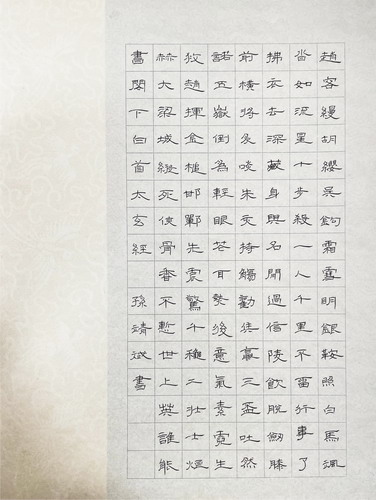 趙客縵胡纓吳鉤霜雪明銀鞍照白馬颯
沓如流星十步殺一人千里不留行事了
拂衣去深藏身與名閒過信陵飲脫劍膝
前橫將炙啖朱亥持觴勸侯嬴三盃吐然
諾五嶽倒為輕眼花耳熱後意氣素霓生
救趙揮金槌邯鄲先震驚千穐二壯士烜
赫大梁城縱死俠骨香不慙世上英誰能
書閣下白首太玄經 孫靖斌書